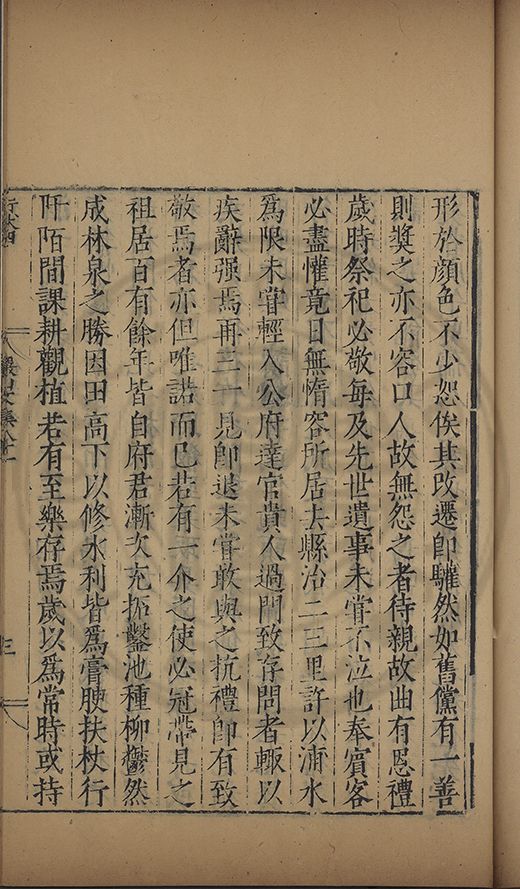 形於顔色不少恕俟其改遷卽驩然如舊儻有一善
則獎之亦不容口人故無怨之者待親故曲有恩禮
歲時祭祀必敬每及先世遺事未甞不泣也奉賓客
必盡懽竟日無惰容所居去縣治二三里許以湏水
爲限未甞輕入公府達官貴人過門致存問者輙以
疾辭强焉再三一見卽退未甞敢與之抗禮卽有致
敬焉者亦但唯諾而已若有一介之使必冠帶見之
祖居百有餘年皆自府君漸次充拓鑿池種柳鬱然
成林泉之勝因田高下以修水利皆爲膏腴扶杖行
阡陌間課耕觀植若有至樂存焉歲以爲常時或持
三